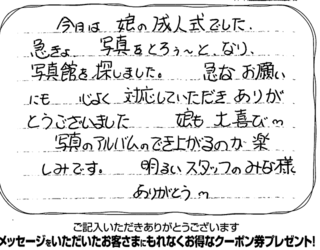 今日は 娘の成人式でした.
急きょ 写真をとろぅ〜と なり、
写真館を探しました。 急な お願い
にも 心よく 対応していただき ありが
とうございました 娘も 大喜び〜
写真のアルバムのでき上がるのが 楽
しみです。 明るい スタッフの みな様
ありがとう〜
ご記入いただきありがとうございます
メッセージをいただいたお客さまにもれなくお得なクーポン券プレゼント!